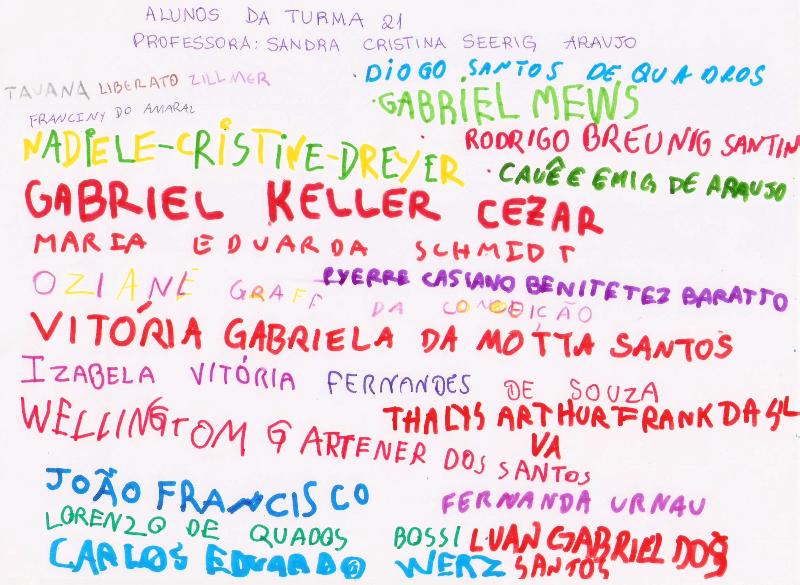 ALUNOS DA TURMA 21
PROFESSORA: SANDRA CRISTINA SEERIG ARAUJO
TAUANA LIBERATO ZILLMER
DIOGO SANTOS DE QUADROS
FRANCINY DO AMARAL
GABRIEL MEWS
NADIELE-CRISTINE-DREYER
RODRIGO BREUNIG SANTIN
CAUÊ E EMIG DE ARAUJO
GABRIEL KELLER CEZAR
MARIA EDUARDA SCHMIDT
OZIANE GRAFF DA CONDEIÇÃO
PYERRE CASIANO BENITETEZ BARATTO
VITÓRIA GABRIELA DA MOTTA SANTOS
IZABELA VITÓRIA FERNANDES DE SOUZA
WELLINGTOM GARTENER DOS SANTOS
THALYS ARTHUR FRANK DA SIL
VA
JOÃO FRANCISCO
FERNANDA URNAU
LORENZO DE QUADOS BOSSI
LUAN GABRIEL DOS
SANTOS
CARLOS EDUARDO WERZ